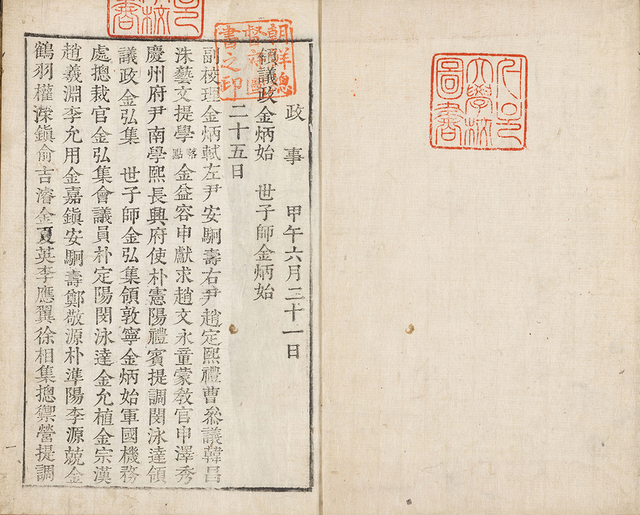 서울
大學校
圖書
政事 甲午六月二十一日
領議政金炳始 世子師金炳始
二十五日
副校理金炳軾左尹安駉壽右尹趙定熙禮曹叅議韓昌
洙藝文提學 點 金益容申獻求趙文永童蒙敎官申澤秀
慶州府尹南學熙長興府使朴憲陽禮賓提調閔泳達領
議政金弘集 世子師金弘集領敦寧金炳始軍國機務
處摠裁官金弘集會議員朴定陽閔泳達金允植金宗漢
趙羲淵李允用金嘉鎭安駉壽鄭敬源朴準陽李源兢金
鶴羽權瀅鎭俞吉濬金夏英李應翼徐相集摠禦營提調
朝鮮總
督府圖
書之印